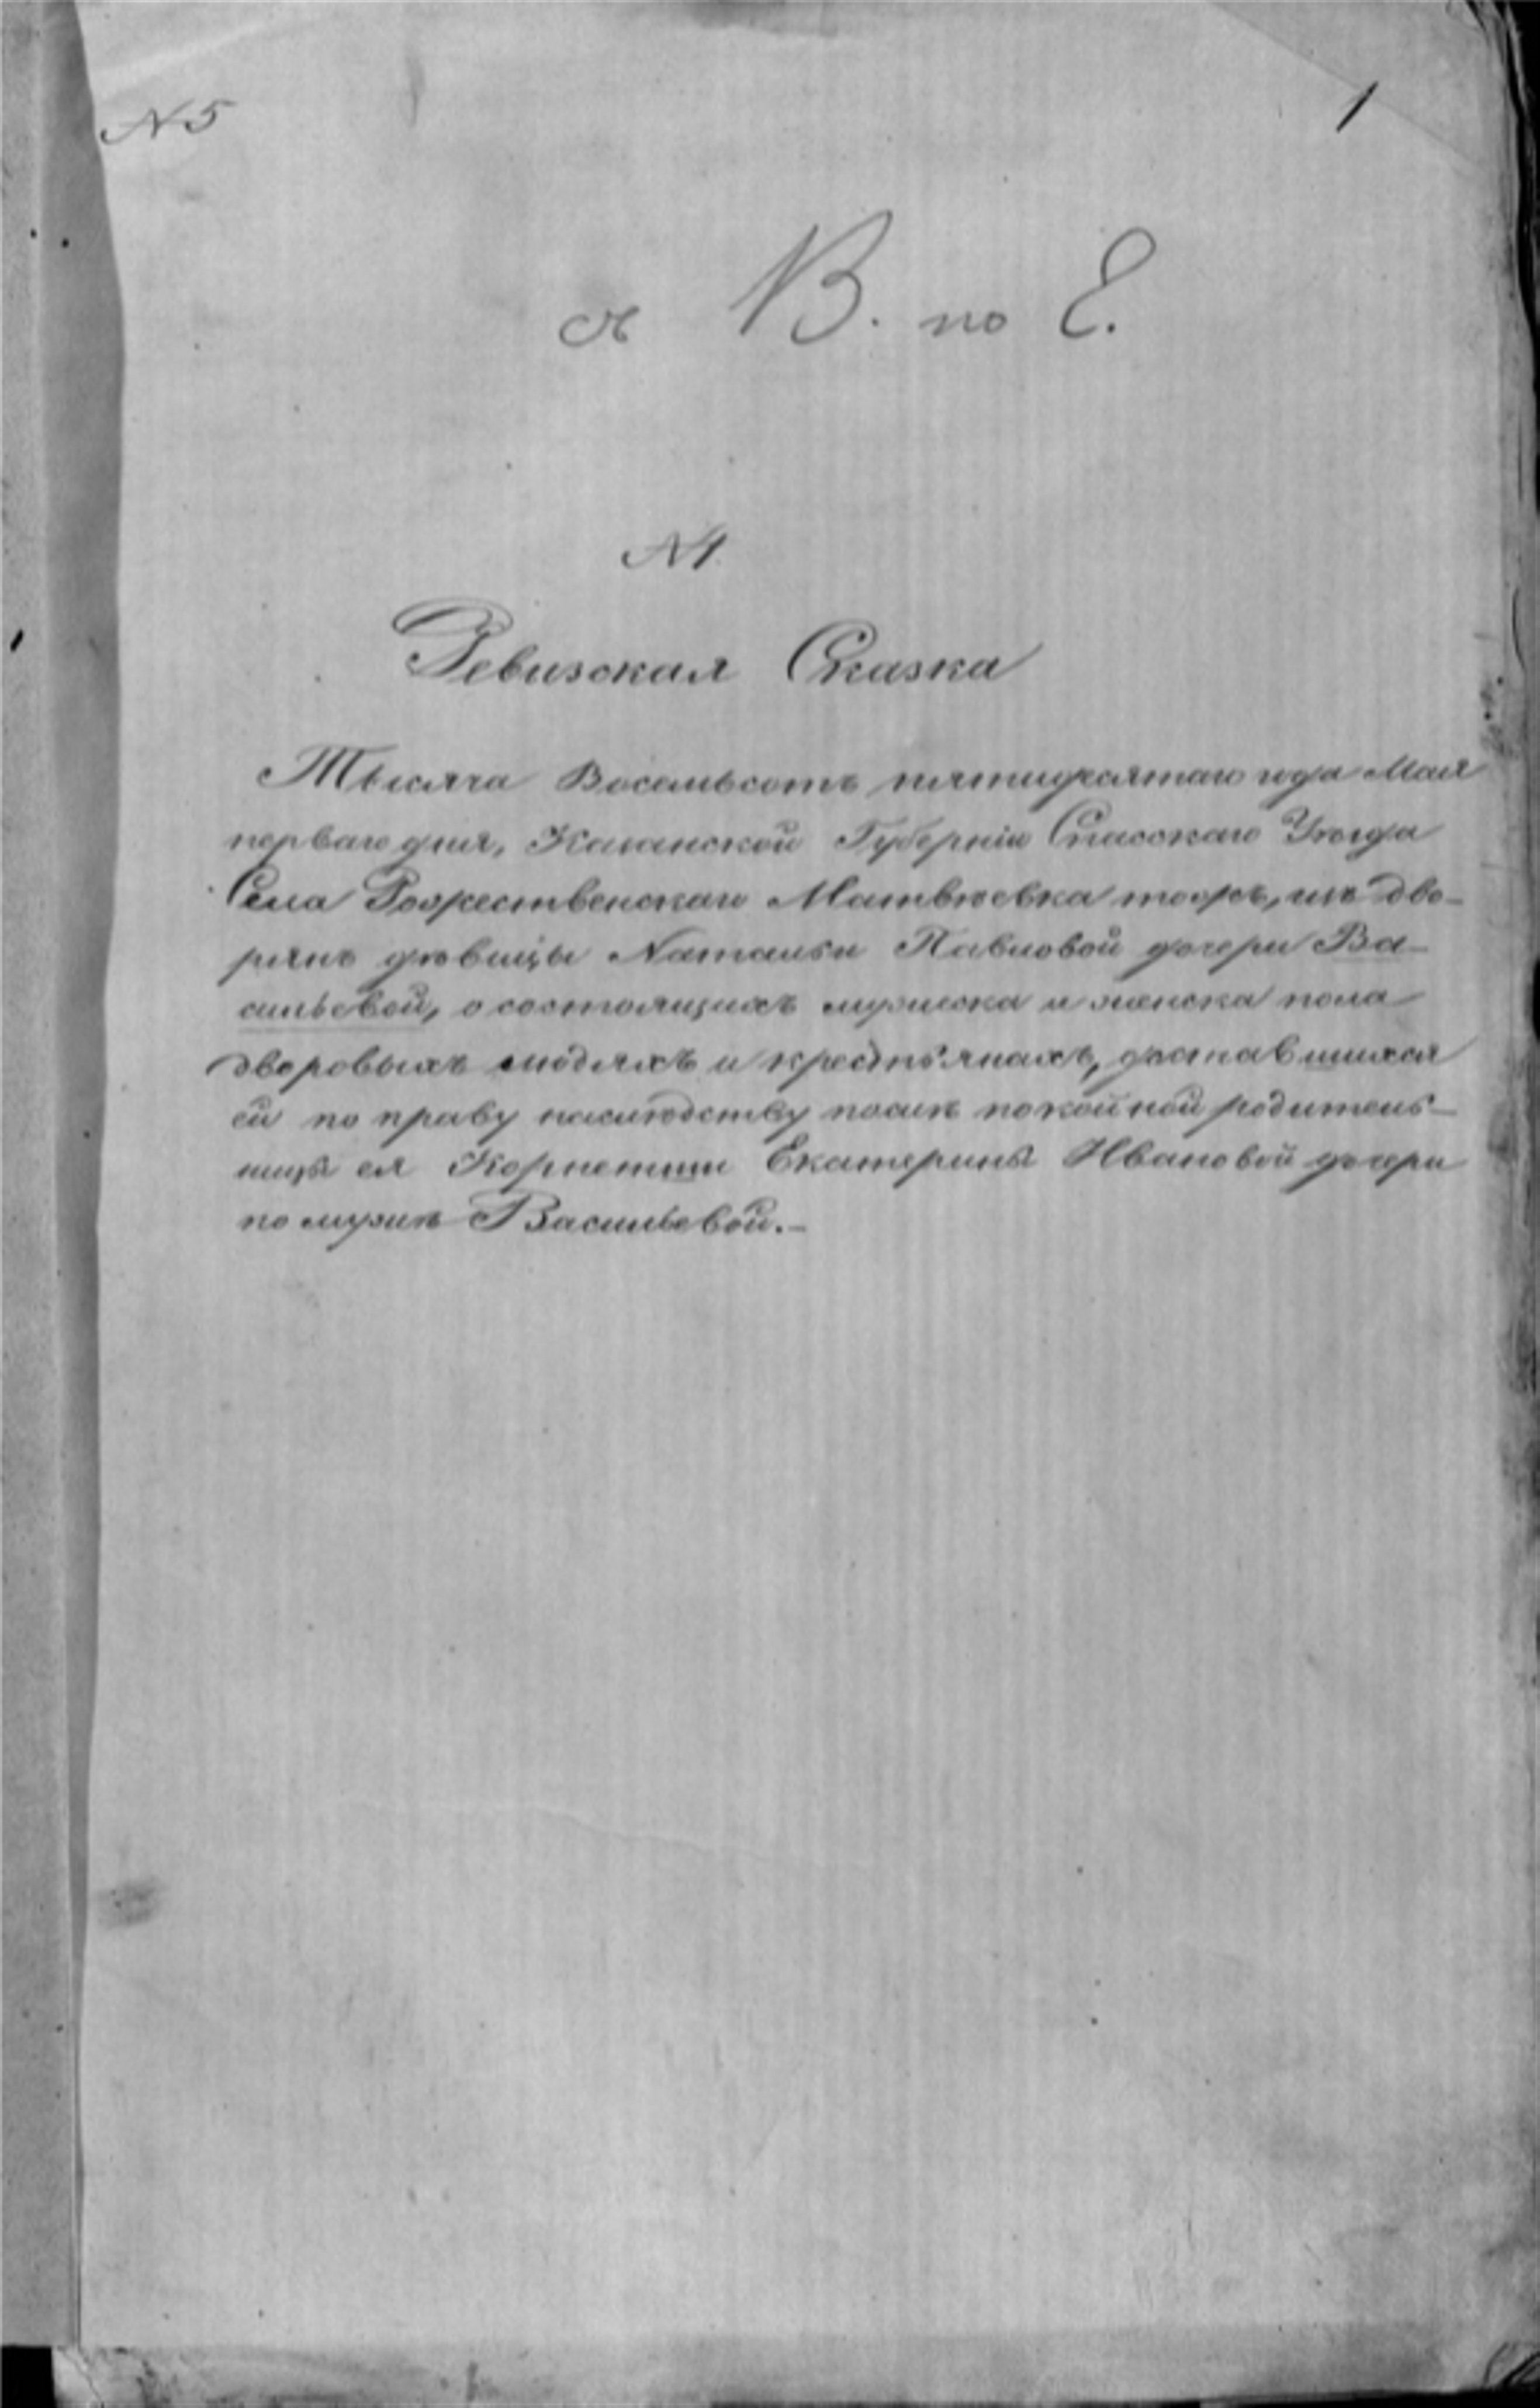 N 5
1
съ В. по Е.
N 1.
Ревизская Сказка
Тысяча Восемьсотъ пятидесятаго года Мая
перваго дня, Казанской Губерніи Спасскаго Уѣзда
Села Рождественскаго Матвѣевка тожъ, изъ дво-
рянъ дѣвицы Натальи Павловой дочери Ва-
сильевой, о состоящихъ мужеска и женска пола
дворовыхъ людяхъ и крестьянахъ, доставшихся
ей по праву наслѣдству послѣ покойной родитель-
ницы ея Корнетши Екатерины Ивановой дочери
по мужѣ Васильевой.-